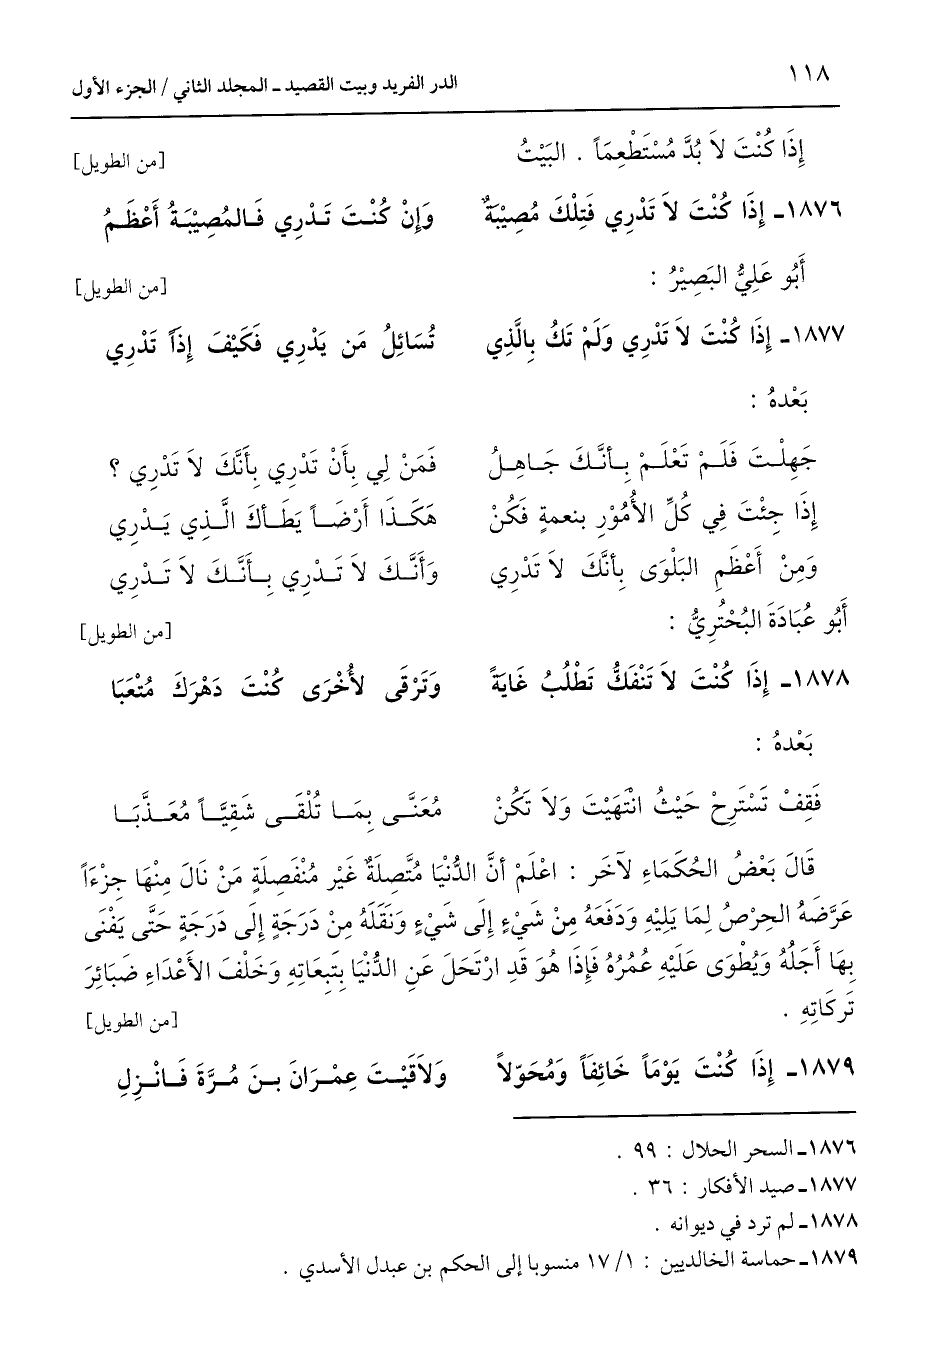 ١١٨ الدر الفريد وبيت القصيد ـ المجلد الثاني / الجزء الأول
إِذَا كُنْتَ لاَ بُدَّ مُسْتَطْعِمَاً . البَيْتُ [من الطويل]
١٨٧٦ـ إِذَا كُنْتَ لاَ تَدْرِي فَتِلْكَ مُصِيْبَةٌ وَإِنْ كُنْتَ تَدْرِي فَالمُصِيْبَةُ أَعْظَمُ
أَبُو عَلِيُّ البَصِيْرُ : [من الطويل]
١٨٧٧ـ إِذَا كُنْتَ لاَ تَدْرِي وَلَمْ تَكُ بِالَّذِي تُسَائِلُ مَن يَدْرِي فَكَيْفَ إِذَاً تَدْرِي
بَعْدهُ :
جَهِلْتَ فَلَمْ تَعْلَمْ بِأَنَّكَ جَاهِلُ فَمَنْ لِي بِأَنْ تَدْرِي بِأَنَّكَ لاَ تَدْرِي ؟
إِذَا جِئْتَ فِي كُلِّ الأُمُوْرِ بنعمةٍ فَكُنْ هَكَذَا أَرْضَاً يَطَأكَ الَّذِي يَدْرِي
وَمِنْ أَعْظَمِ البَلْوَى بأنَّكَ لاَ تَدْرِي وَأَنَّكَ لاَ تَدْرِي بِأَنَّكَ لاَ تَدْرِي
أَبُو عُبَادَةَ البُحْتُرِيُّ : [من الطويل]
١٨٧٨ـ إِذَا كُنْتَ لاَ تَنْفَكُّ تَطْلُبُ غَايَةً وَتَرْقَى لأُخْرَى كُنْتَ دَهْرَكَ مُتْعَبَا
بَعْدهُ :
فَقِفْ تَسْتَرِحْ حَيْثُ انْتَهَيْتَ وَلاَ تَكُنْ مُعَنَّى بِمَا تُلْقَى شَقِيَّاً مُعَذَّبَا
قَالَ بَعْضُ الحُكَمَاءِ لآخَر : اعْلَمْ أنَّ الدُّنْيَا مُتَّصِلَةٌ غَيْر مُنْفَصِلَةٍ مَنْ نَالَ مِنْهَا جِزْءَاً
عَرَّضَهُ الحِرْصُ لِمَا يَلِيْهِ وَدَفَعَهُ مِنْ شَيْءٍ إِلَى شَيْءٍ وَنَقَلَهُ مِنْ دَرَجَةٍ إِلَى دَرَجَةٍ حَتَّى يَفْنَى
بِهَا أَجَلُهُ وَيُطْوَى عَلَيْهِ عُمُرُهُ فَإِذَا هُوَ قَدِ ارْتَحَلَ عَنِ الدُّنْيَا بِتَبِعَاتِهِ وَخَلْفَ الأَعْدَاءِ ضَبَائِرَ
تَركَاتِهِ . [من الطويل]
١٨٧٩ـ إِذَا كُنْتَ يَوْمَاً خَائِفَاً وَمُحَوّلاً وَلاَقَيْتَ عِمْرَانَ بنَ مُرَّةَ فَانْزِلِ
١٨٧٦ـ السحر الحلال : ٩٩ .
١٨٧٧ـ صيد الأفكار : ٣٦ .
١٨٧٨ـ لم ترد في ديوانه .
١٨٧٩ـ حماسة الخالديين : ١/ ١٧ منسوبا إلى الحكم بن عبدل الأسدي .